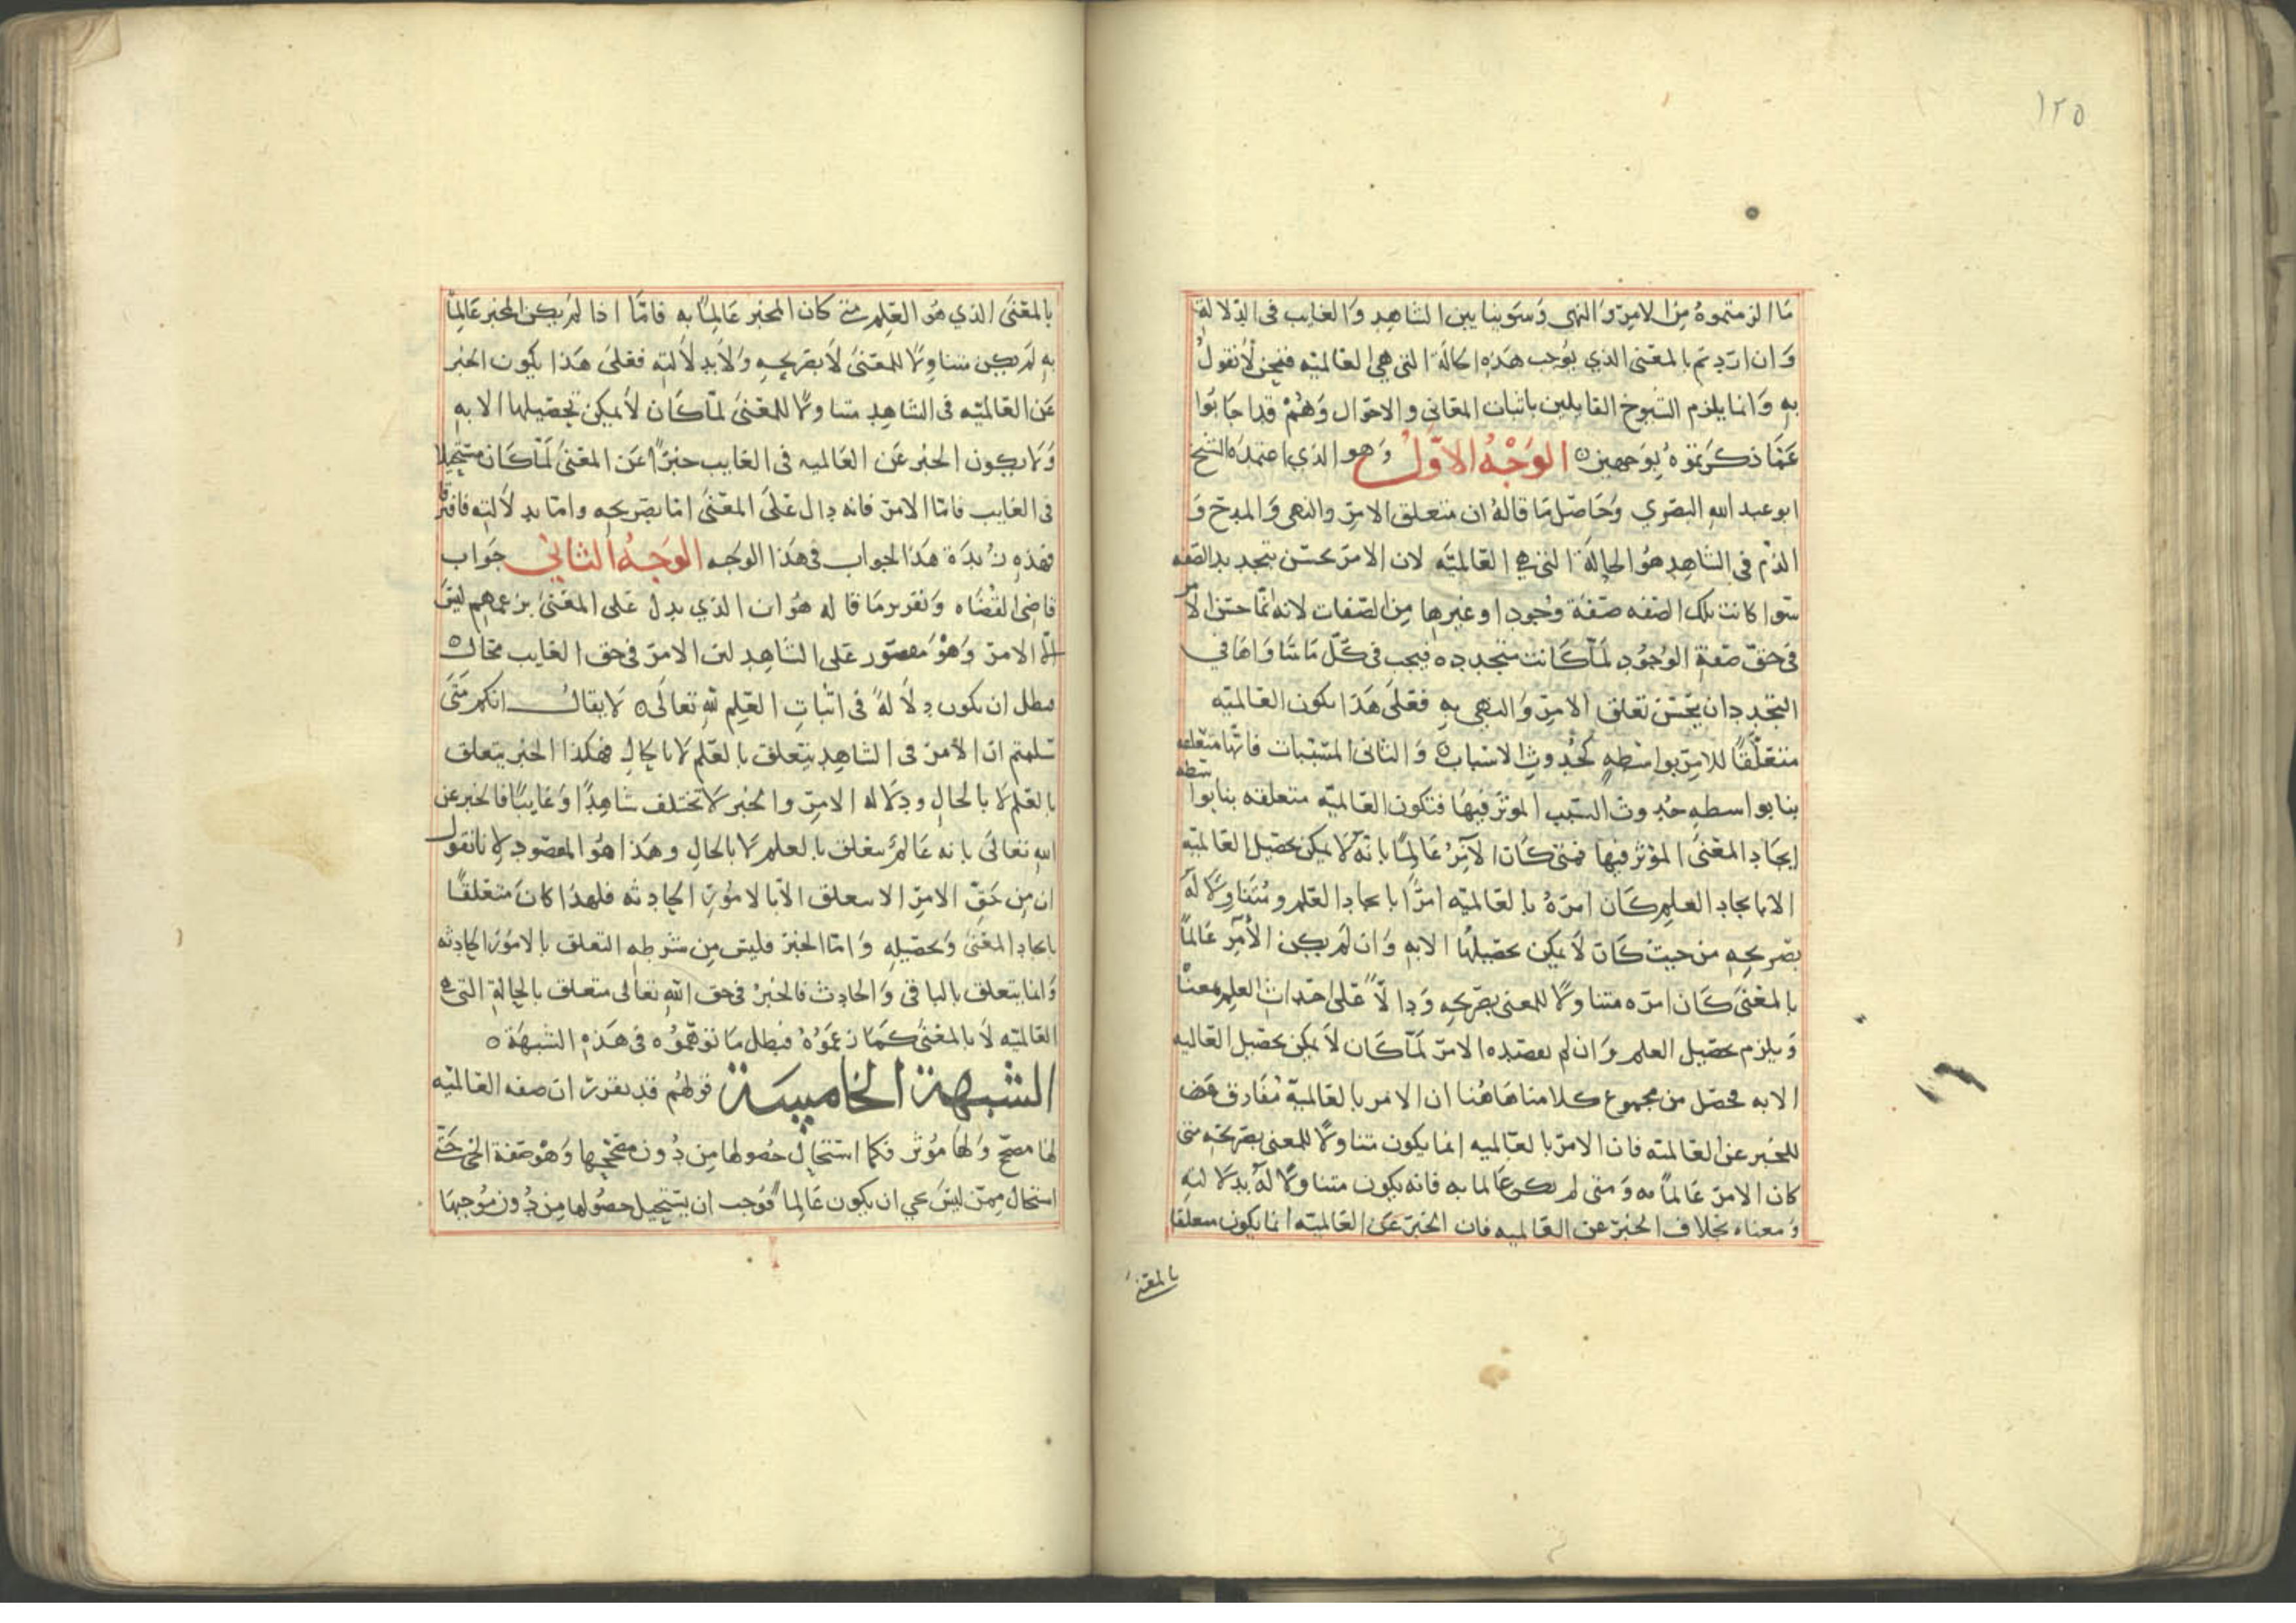 ١٢٥
ما الزمتموه من الامر والنهى وسوينا بين الشاهد والغايب فى الدلالة
وان اردتم بالمعنى الذي يوجب هذه الحالة التى هي العالميه فنحن لا نقول
به وانما يلزم الشيوخ القايلين باثبات المعاني والاحوال وهم قد اجابوا
عما ذكرتموه بوجهين الوجه الاول وهو الذي اعتمده الشيخ
ابو عبد الله البصري وحاصل ما قاله ان متعلق الامر والنهى والمدح و
الذم فى الشاهد هو الحالة التى هي العالميه لان الامر يحسن بتجدد الصفه
سوا كانت تلك الصفه صفة وجود او غيرها من الصفات لانه انما حسن الامر
فى حق صفة الوجود لما كانت متجدده فيجب فى كل ما ساواها في
التجدد ان يحسن تعلق الامر والنهى به فعلى هذا يكون العالميه
متعلقا للامر بواسطه كحدوث الاسباب والثانى المسببات فانها متعلقه
بنا بواسطه حدوث السبب الموثر فيها فتكون العالميه متعلقه بنا بواسطه
ايجاد المعنى المؤثر فيها فمتى كان الآمر عالما بانه لا يمكن تحصيل العالميه
الا بايجاد العلم كان امره بالعالميه امرا بايجاد العلم ومتناولا له
بصريحه من حيث كان لا يمكن تحصيلها الا به وان لم يكن الآمر عالما
بالمعنى كان امره متناولا للمعنى بصريحه ودالا على احداث العلم بمعناه
ويلزم تحصيل العلم وان لم يقصده الامر لما كان لا يمكن تحصيل العالميه
الا به فحصل من مجموع كلامنا هاهنا ان الامر بالعالمية مفارق
للخبر عن العالميه فان الامر بالعالميه انما يكون متناولا للمعنى بصريحه متى
كان الامر عالما به ومتى لم يكن عالما به فانه يكون متناولا له بدلالته
ومعناه بخلاف الخبر عن العالميه فان الخبر عن العالميه انما يكون متعلقا
بالمعنى
بالمعنى الذي هو العلم متى كان المخبر عالما به فاما اذا لم يكن المخبر عالما
به لم يكن متناولا للمعنى لا بصريحه ولا بدلالته فعلى هذا يكون الخبر
عن العالميه فى الشاهد متناولا للمعنى لما كان لا يمكن تحصيلها الا به
ولا يكون الخبر عن العالميه فى الغايب خبرا عن المعنى لما كان مستحيلا
فى الغايب فاما الامر فانه دال على المعنى اما بصريحه واما بدلالته فافترقا
فهذه زبدة هذا الجواب فى هذا الوجه الوجه الثاني جواب
قاضى القضاه وتقرير ما قاله هو ان الذي يدل على المعنى بزعمهم ليس
الا الامر وهو مقصور على الشاهد لان الامر فى حق الغايب محال
فبطل ان يكون دلالة فى اثبات العلم لله تعالى لا يقال انكم متى
سلمتم ان الامر فى الشاهد يتعلق بالعلم لا بالحال فهكذا الخبر يتعلق
بالعلم لا بالحال ودلاله الامر والخبر لا تختلف شاهدا وغايبا فالخبر عن
الله تعالى بانه عالم يتعلق بالعلم لا بالحال وهذا هو المقصود لانا نقول
ان من حق الامر الا يتعلق الا بالامور الحادثه فلهذا كان متعلقا
بايجاد المعنى وتحصيله واما الخبر فليس من شرطه التعلق بالامور الحادثه
وانما يتعلق بالباقى والحادث فالخبر فى حق الله تعالى متعلق بالحالة التى هي
العالميه لا بالمعنى كما زعموه فبطل ما توهموه فى هذه الشبهة
الشبهة الخامسة قولهم قد تقرر ان صفه العالميه
لها مصحح ولها مؤثر فكما استحال حصولها من دون مصححها وهو صفة الحى حتى
استحال ممن ليس بحي ان يكون عالما فوجب ان يستحيل حصولها من دون موجبها